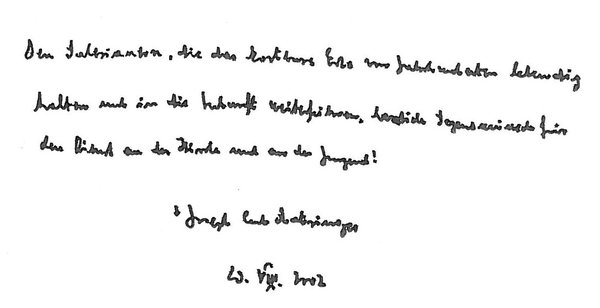 Den Salesianern, die das kostbare Erbe von Jahrhunderten lebendig
halten und in die Zukunft weiterführen, herzliche Segenswünsche für
den Dienst an der Kirche und an der Jugend!
+ Joseph Card. Ratzinger
VIII. 2002